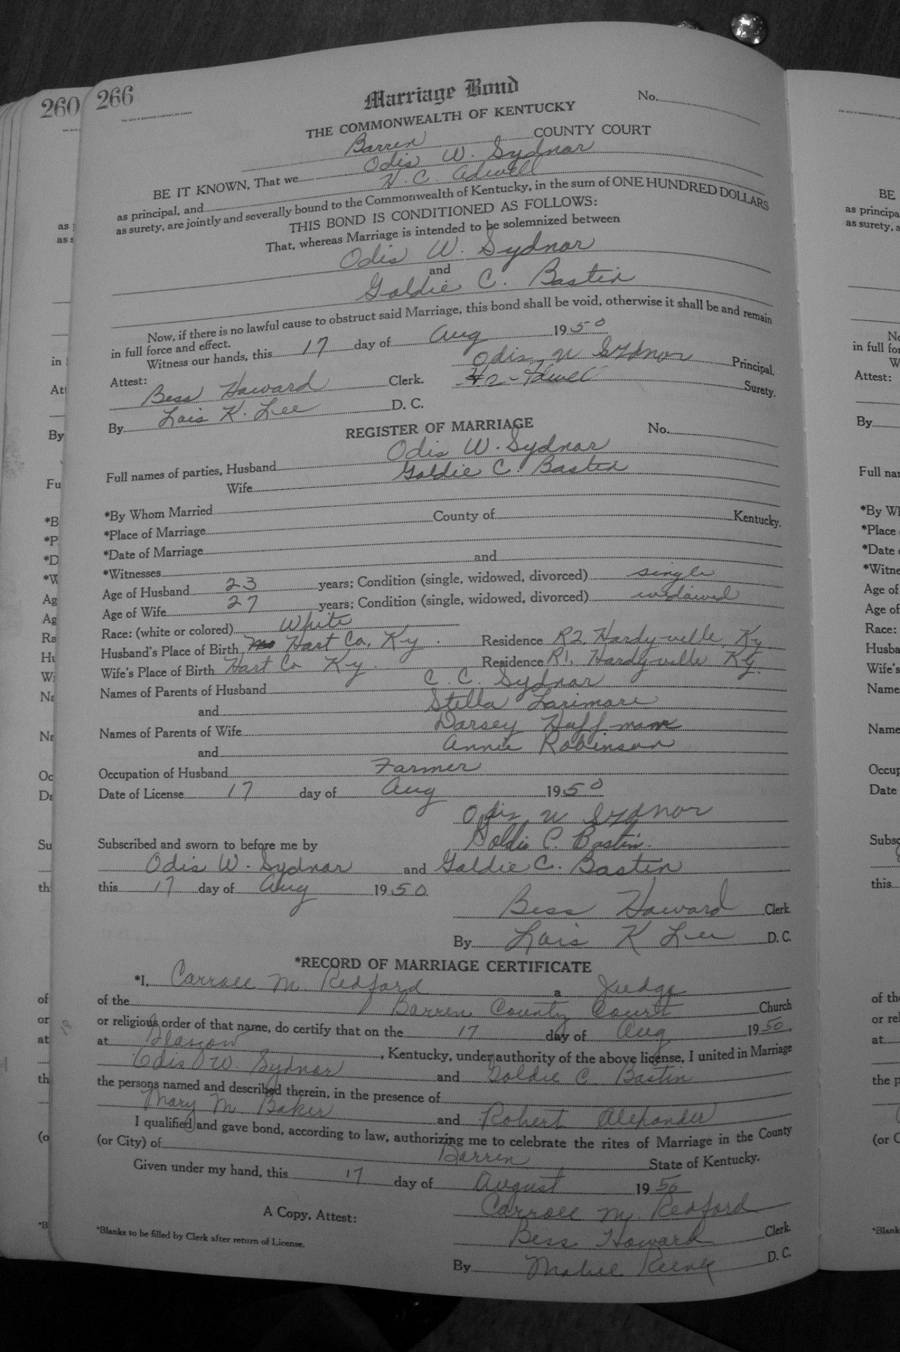 260 266
Marriage Bond
No.
THE COMMONWEALTH OF KENTUCKY
Barren COUNTY COURT
BE IT KNOWN, That we Odis W. Sydnor
as principal, and H. C. Adwell
as surety, are jointly and severally bound to the Commonwealth of Kentucky, in the sum of ONE HUNDRED DOLLARS
THIS BOND IS CONDITIONED AS FOLLOWS:
That, whereas Marriage is intended to be solemnized between
Odis W. Sydnor
and
Goldie C. Bastin
Now, if there is no lawful cause to obstruct said Marriage, this bond shall be void, otherwise it shall be and remain
in full force and effect.
Witness our hands, this 17 day of Aug 1950
Odis W Sydnor Principal.
Attest:
Bess Howard Clerk. Surety.
By Lois K. Lee D. C.
REGISTER OF MARRIAGE No.
Full names of parties, Husband Odis W. Sydnor
Wife Goldie C. Bastin
*By Whom Married
*Place of Marriage County of Kentucky.
*Date of Marriage
*Witnesses and
Age of Husband 23 years; Condition (single, widowed, divorced) single
Age of Wife 27 years; Condition (single, widowed, divorced) widowed
Race: (white or colored) White
Husband's Place of Birth Hart Co, Ky. Residence R2, Hardyville, Ky
Wife's Place of Birth Hart Co Ky. Residence R1, Hardyville Ky.
Names of Parents of Husband C. C. Sydnor
and Stella Larimore
Names of Parents of Wife Dorsey Huffman
and Annie Robinson
Occupation of Husband Farmer
Date of License 17 day of Aug 1950
Odis W Sydnor
Goldie C. Bastin.
Subscribed and sworn to before me by
Odis W. Sydnor and Goldie C. Bastin
this 17 day of Aug 1950
Bess Howard Clerk
By Lois K Lee D. C.
*RECORD OF MARRIAGE CERTIFICATE
*I, Carroll M. Redford a Judge
of the Barren County Court Church
or religious order of that name, do certify that on the 17 day of Aug 1950
at Glasgow, Kentucky, under authority of the above license, I united in Marriage
Odis W. Sydnor and Goldie C Bastin
the persons named and described therein, in the presence of
Mary M. Baker and Robert Alexander
I qualified and gave bond, according to law, authorizing me to celebrate the rites of Marriage in the County
(or City) of Barren State of Kentucky.
Given under my hand, this 17 day of August 1950
Carroll M. Redford
A Copy, Attest: Bess Howard Clerk.
*Blanks to be filled by Clerk after return of License.
By D. C.